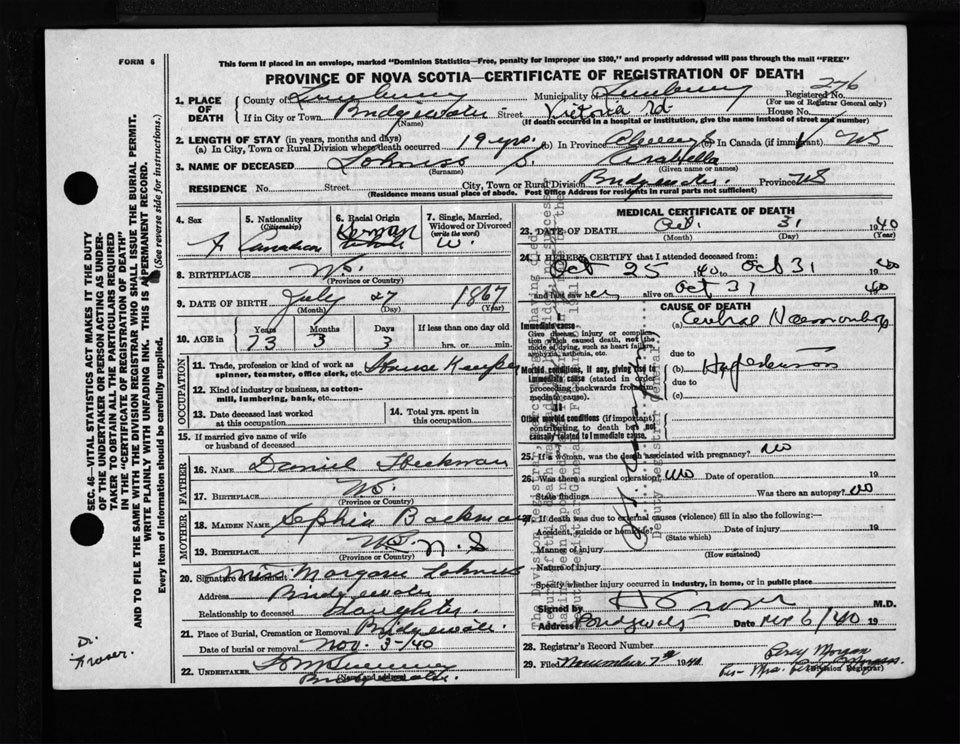 FORM 6
This form if placed in an envelope, marked "Dominion Statistics—Free, penalty for improper use $300," and properly addressed will pass through the mail "FREE"
PROVINCE OF NOVA SCOTIA—CERTIFICATE OF REGISTRATION OF DEATH
276
1. PLACE OF DEATH County of Lunenburg Municipality of Lunenburg Registered No.
(For use of Registrar General only)
If in City or Town Bridgewater Street Victoria Rd House No.
(Name) (If death occurred in a hospital or institution, give the name instead of street and number)
2. LENGTH OF STAY (in years, months and days)
(a) In City, Town or Rural Division where death occurred 19 yrs. (b) In Province Always (c) In Canada (if immigrant)
3. NAME OF DECEASED Lohnes S. Arabella
(Surname) (Given name or names)
RESIDENCE No. Street City, Town or Rural Division Bridgewater. Province NS
(Residence means usual place of abode. Post Office Address for Residents in rural parts not sufficient)
4. Sex
F
5. Nationality
(Citizenship)
Canadian
6. Racial Origin
German
7. Single, Married, Widowed or Divorced
(write the word)
W.
8. BIRTHPLACE NS.
(Province or Country)
9. DATE OF BIRTH July 27 1867
(Month) (Day) (Year)
10. AGE in Years Months Days If less than one day old
73 3 3 hrs. or min.
OCCUPATION
11. Trade, profession or kind of work as spinner, teamster, office clerk, etc. House Keeper
12. Kind of industry or business, as cotton-mill, lumbering, bank, etc.
13. Date deceased last worked at this occupation
14. Total yrs. spent in this occupation
15. If married give name of wife or husband of deceased
FATHER
16. NAME Daniel Heckman
17. BIRTHPLACE NS.
(Province or Country)
MOTHER
18. MAIDEN NAME Sophia Backman
19. BIRTHPLACE N.S
(Province or Country)
20. Signature of Miss Lohnes
Address Bridgewater
Relationship to deceased Daughter.
21. Place of Burial, Cremation or Removal Bridgewater.
Date of burial or removal Nov. 3-/40
22. UNDERTAKER
Bridgewater.
(Name and address)
MEDICAL CERTIFICATE OF DEATH
23. DATE OF DEATH Oct. 31 1940
(Month) (Day) (Year)
24. I HEREBY CERTIFY that I attended deceased from:
Oct 25 1940 to Oct 31 1940
and last saw her alive on Oct 31 1940
CAUSE OF DEATH
Immediate cause
Give disease, injury or complication which caused death, not the mode of dying, such as heart failure, asphyxia, asthenia, etc.
(a) Cerebral
due to
Morbid conditions, if any, giving rise to immediate cause (stated in order proceeding backwards from immediate cause).
(b) Hypertension
due to
(c)
II
Other morbid conditions (if important) contributing to death but not causally related to immediate cause.
25. If a woman, was the death associated with pregnancy? No
26. Was there a surgical operation? No Date of operation 19
State findings Was there an autopsy? No
27. If death was due to external causes (violence) fill in also the following:—
Accident, suicide or homicide Date of injury 19
(State which)
Manner of injury
(How sustained)
Nature of injury
Specify whether injury occurred in industry, in home, or in public place
Signed by M.D.
Address Bridgewater Date Nov 6/40 19
28. Registrar's Record Number
29. Filed November 7th 1940 Percy Morgan
Per Mrs. Percy Morgan.
(Division Registrar)
SEC. 46—VITAL STATISTICS ACT MAKES IT THE DUTY OF THE UNDERTAKER OR PERSON ACTING AS UNDERTAKER TO OBTAIN ALL THE PARTICULARS REQUIRED IN THE "CERTIFICATE OF REGISTRATION OF DEATH"
AND TO FILE THE SAME WITH THE DIVISION REGISTRAR WHO SHALL ISSUE THE BURIAL PERMIT.
WRITE PLAINLY WITH UNFADING INK. THIS IS A PERMANENT RECORD.
Every item of information should be carefully supplied.
(See reverse side for instructions.)
Dr. Fraser.